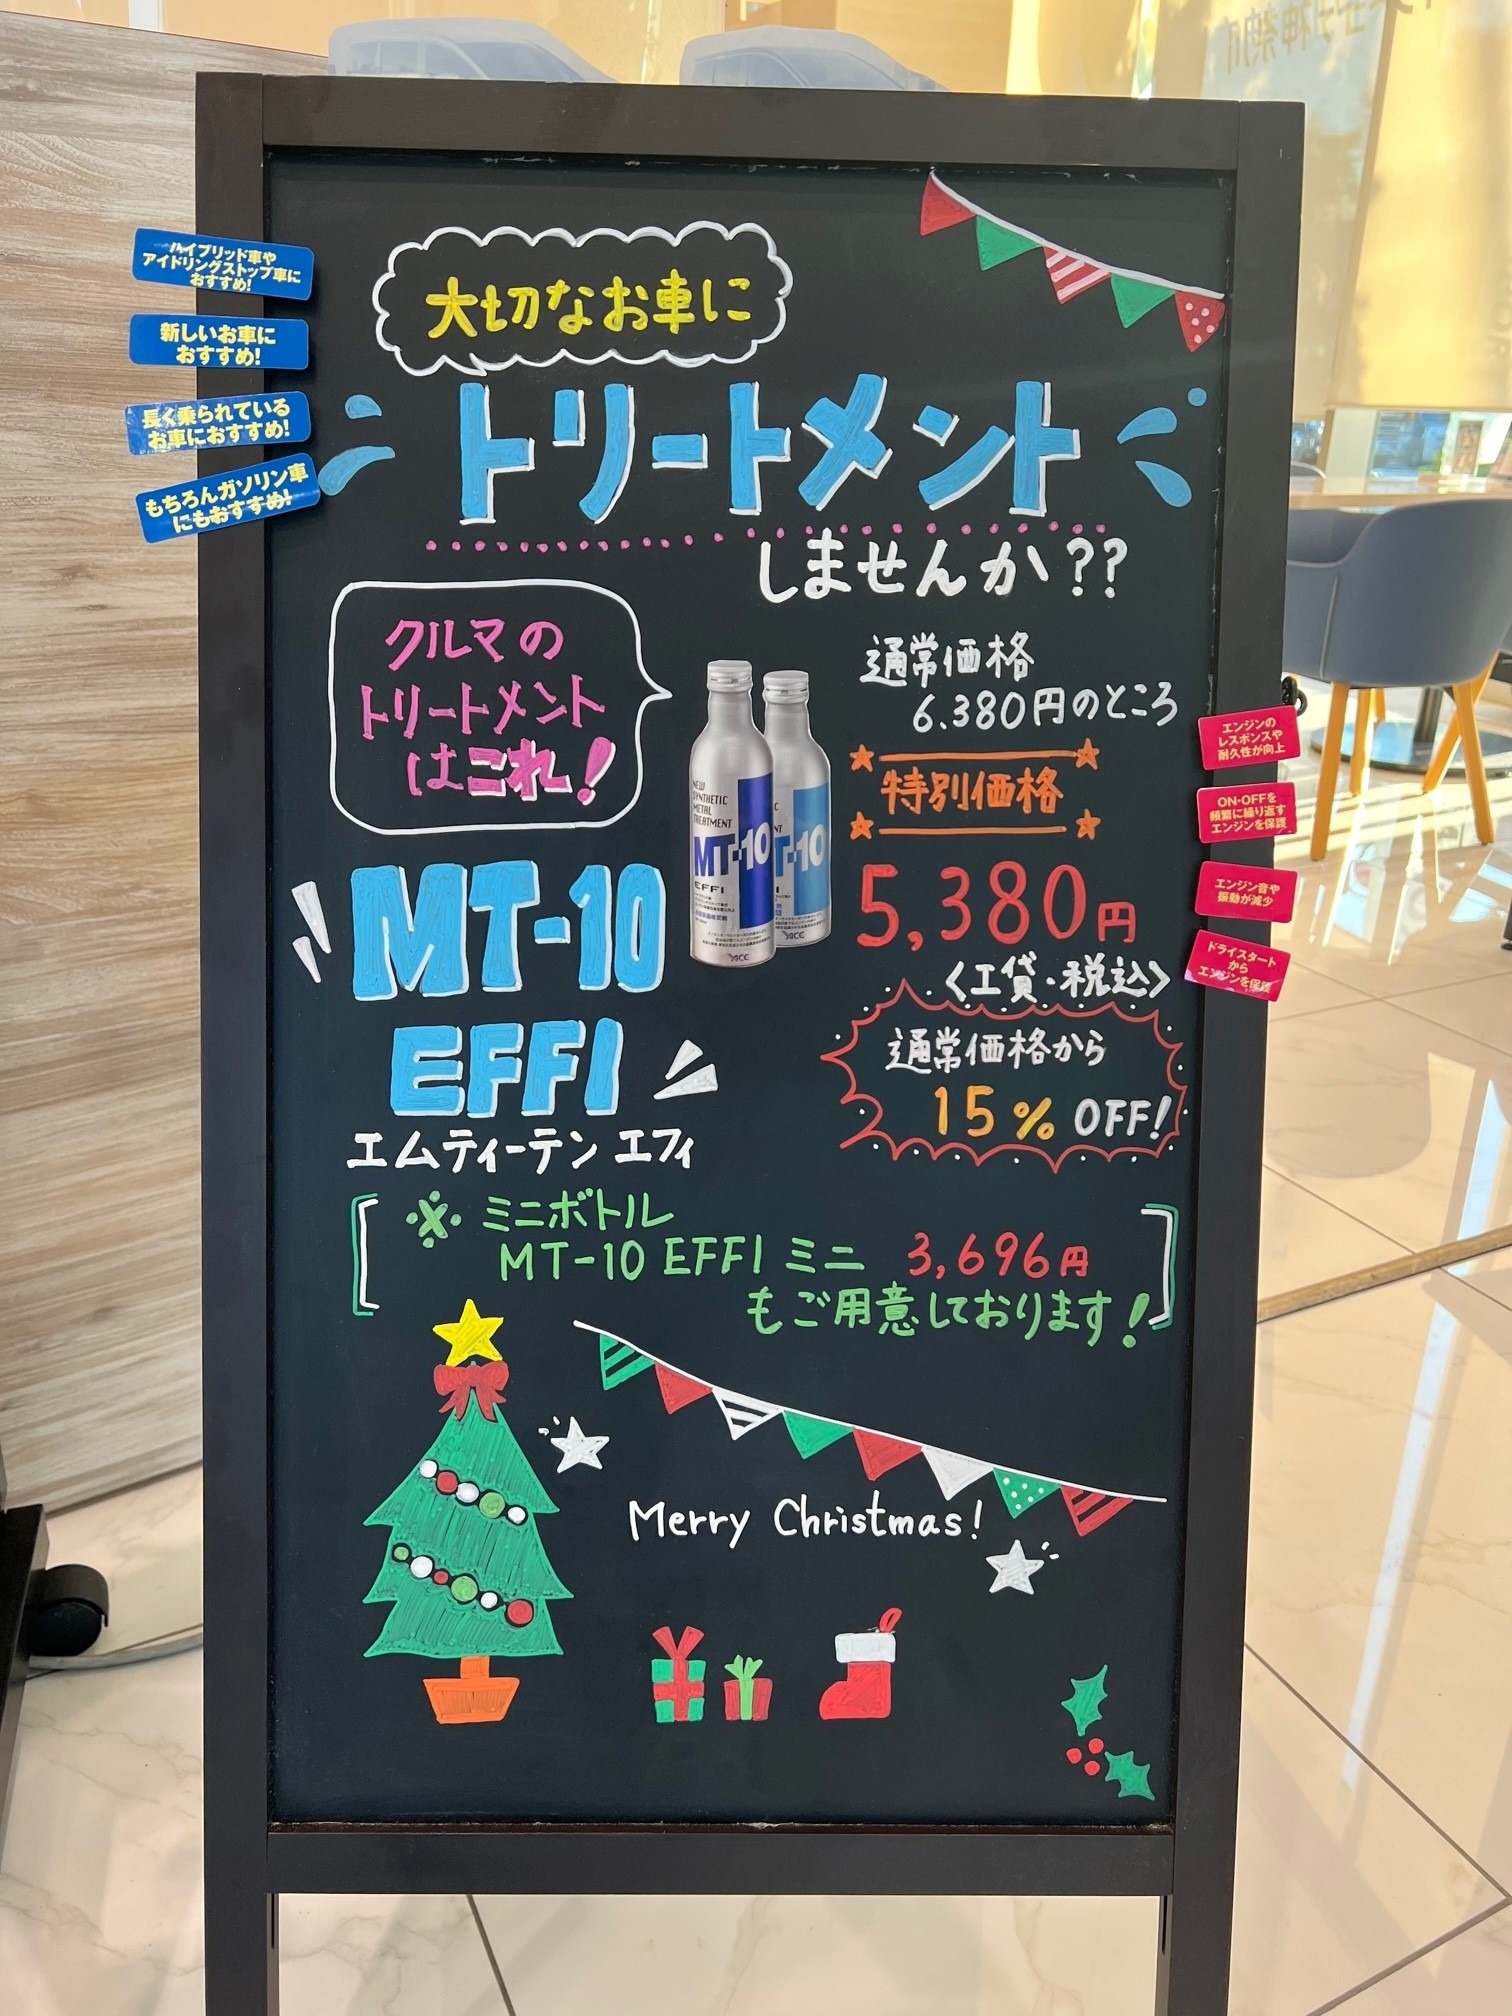 ハイブリッド車や
アイドリングストップ車に
おすすめ!
新しいお車に
おすすめ!
長く乗られている
お車におすすめ!
もちろんガソリン車
にもおすすめ!
大切なお車に
トリートメント
しませんか??
クルマの
トリートメント
はこれ!
NEW
SYNTHETIC
METAL
TREATMENT
MT-10
EFFI
ACE
T-10
ACE
通常価格
6.380円のところ
特別価格
5,380円
<工賃・税込>
通常価格から
15% OFF!
エンジンの
レスポンスや
耐久性が向上
ON・OFFを
頻繁に繰り返す
エンジンを保護
エンジン音や
振動が減少
ドライスタート
から
エンジンを保護
MT-10
EFFI
エムティーテン エフィ
※ ミニボトル
MT-10 EFFI ミニ 3,696円
もご用意しております!
Merry Christmas!